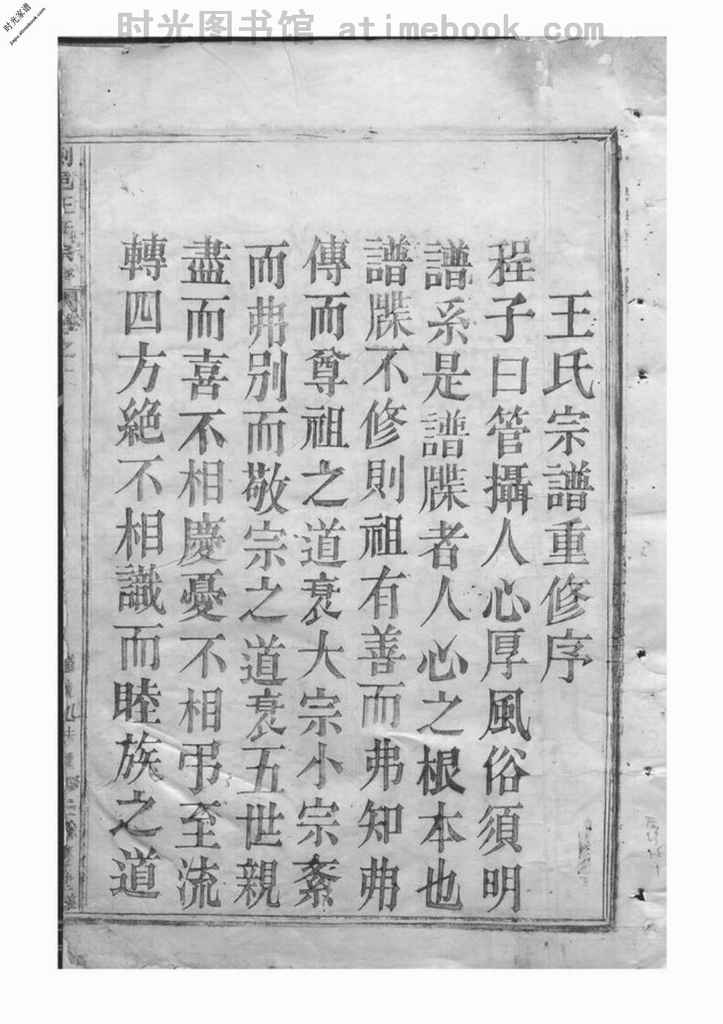 时光图书馆 atimebook.com
时光家谱
jiapu.atimebook.com
王氏宗譜重修序
程子曰管攝人心厚風俗須明
譜系是譜牒者人心之根本也
譜牒不修則祖有善而弗知弗
傳而尊祖之道衰大宗小宗紊
而弗別而敬宗之道衰五世親
盡而喜不相慶憂不相弔至流
轉四方絶不相識而睦族之道